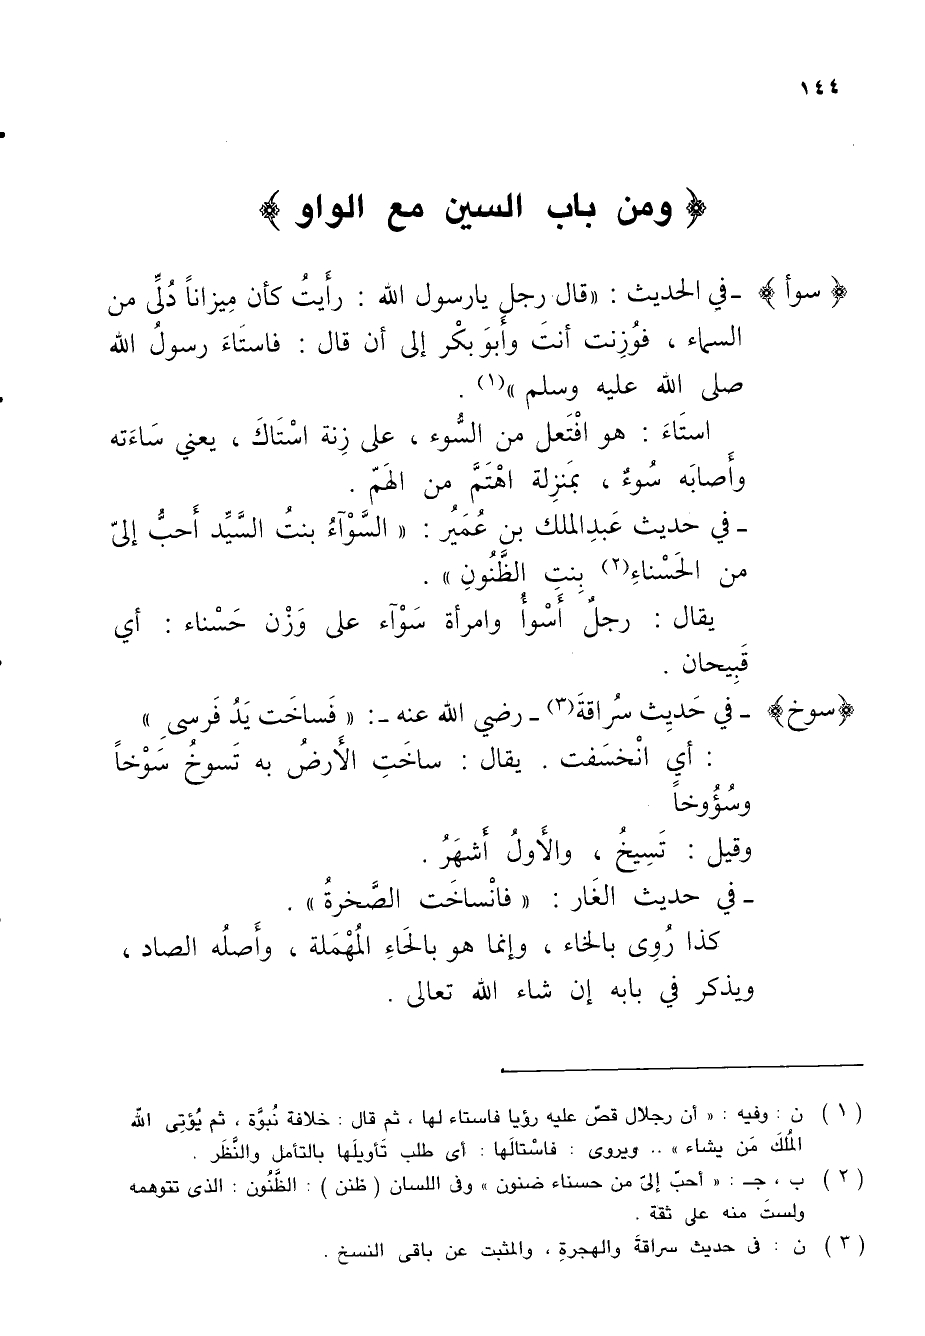 ١٤٤
﴿ ومن باب السين مع الواو ﴾
﴿ سوأ ﴾ ـ في الحديث : «قال رجل يارسول الله : رأَيتُ كأن مِيزاناً دُلِّى من
السماء ، فوُزِنت أنتَ وأَبوَ بكْر إلى أن قال : فاستَاءَ رسولُ الله
صلى الله عليه وسلم »(١) .
استَاءَ : هو افْتَعل من السُّوء ، على زِنة اسْتَاكَ ، يعني سَاءَته
وأَصابَه سُوءٌ ، بمَنزِلة اهْتَمَّ من الهَمّ .
ـ في حديث عَبدِالملك بن عُمَيُر : « السَّوْآءُ بنتُ السَّيِّد أَحبُّ إلىّ
من الحَسْناءِ(٢) بِنتِ الظَّنُونِ » .
يقال : رجلٌ أَسْوأُ وامرأة سَوْآء على وَزْن حَسْناء : أي
قَبِيحان .
﴿سوخ﴾ ـ في حَدِيثِ سرُاقةَ(٣) ـ رضي الله عنه ـ: « فَساخَت يَدُ فَرسى »
: أي انْخسَفت . يقال : ساخَتِ الأَرضُ به تَسوخُ سَوْخاً
وسُؤُوخاً
وقيل : تَسِيخُ ، والأَولُ أَشهَرُ .
ـ في حديث الغَار : « فانْساخَت الصَّخرةُ » .
كذا رُوِى بالخاء ، وإنما هو بالحَاءِ المُهْمَلة ، وأَصلُه الصاد ،
ويذكر في بابه إن شاء الله تعالى .
(١) ن : وفيه : « أن رجلال قصّ عليه رؤيا فاستاء لها ، ثم قال : خلافة نُبوَّة ، ثم يُؤتِى الله
المُلكَ مَن يشاء » .. ويروى : فاسْتالَها : أى طلب تَأوِيلَها بالتأمل والنَّظَر .
(٢) ب ، جـ : « أحبّ إلىّ من حسناء ضنون » وفى اللسان ( ظنن ) : الظَّنُون : الذى تتوهمه
ولستَ منه على ثقة .
(٣) ن : فى حديث سراقةَ والهجرةِ ، والمثبت عن باقى النسخ .